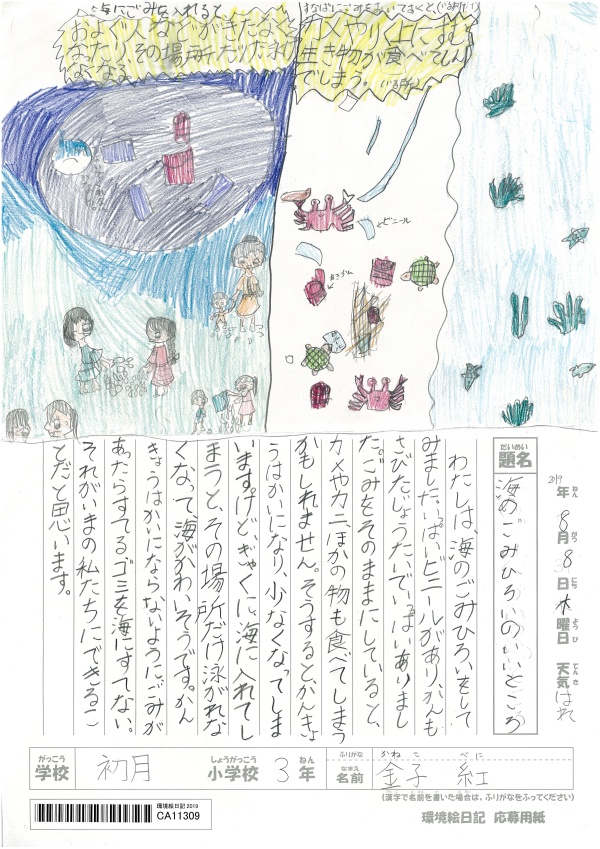 海にごみを入れると
およぐ
その場所だけ
なくなる
すなばにごみをおいておくと、
カメやりく上にすむ
生き物が食べてしん
でしまう。
ビニール
あきかん
2019年ねん8月がつ8日にち木曜日ようび 天気てんきはれ
だいめい
題名
海のごみひろいのいいところ
わたしは、海のごみひろいをして
みました。いっぱいビニールがあり、かんも
さびたじょうたいでいっぱいありまし
た。ごみをそのままにしていると、
カメやカニほかの物も食べてしまう
かもしれません。そうすると、かんきょ
うはかいになり、少なくなってしま
います。けど、ぎゃくに、海に入れてし
まうと、その場所だけ泳がれな
くなって海がかわいそうです。かん
きょうはかいにならないように、ごみが
あったらすてる、ゴミを海にすてない。
それがいまの私たちにできるこ
とだと思います。
がっこう しょうがっこう ねん ふりがな かねこ べに
学校 初月 小学校 3年 なまえ 名前 金子 紅
(漢字で名前を書いた場合は、ふりがなをふってください)
環境絵日記2019
CA11309
環境絵日記 応募用紙